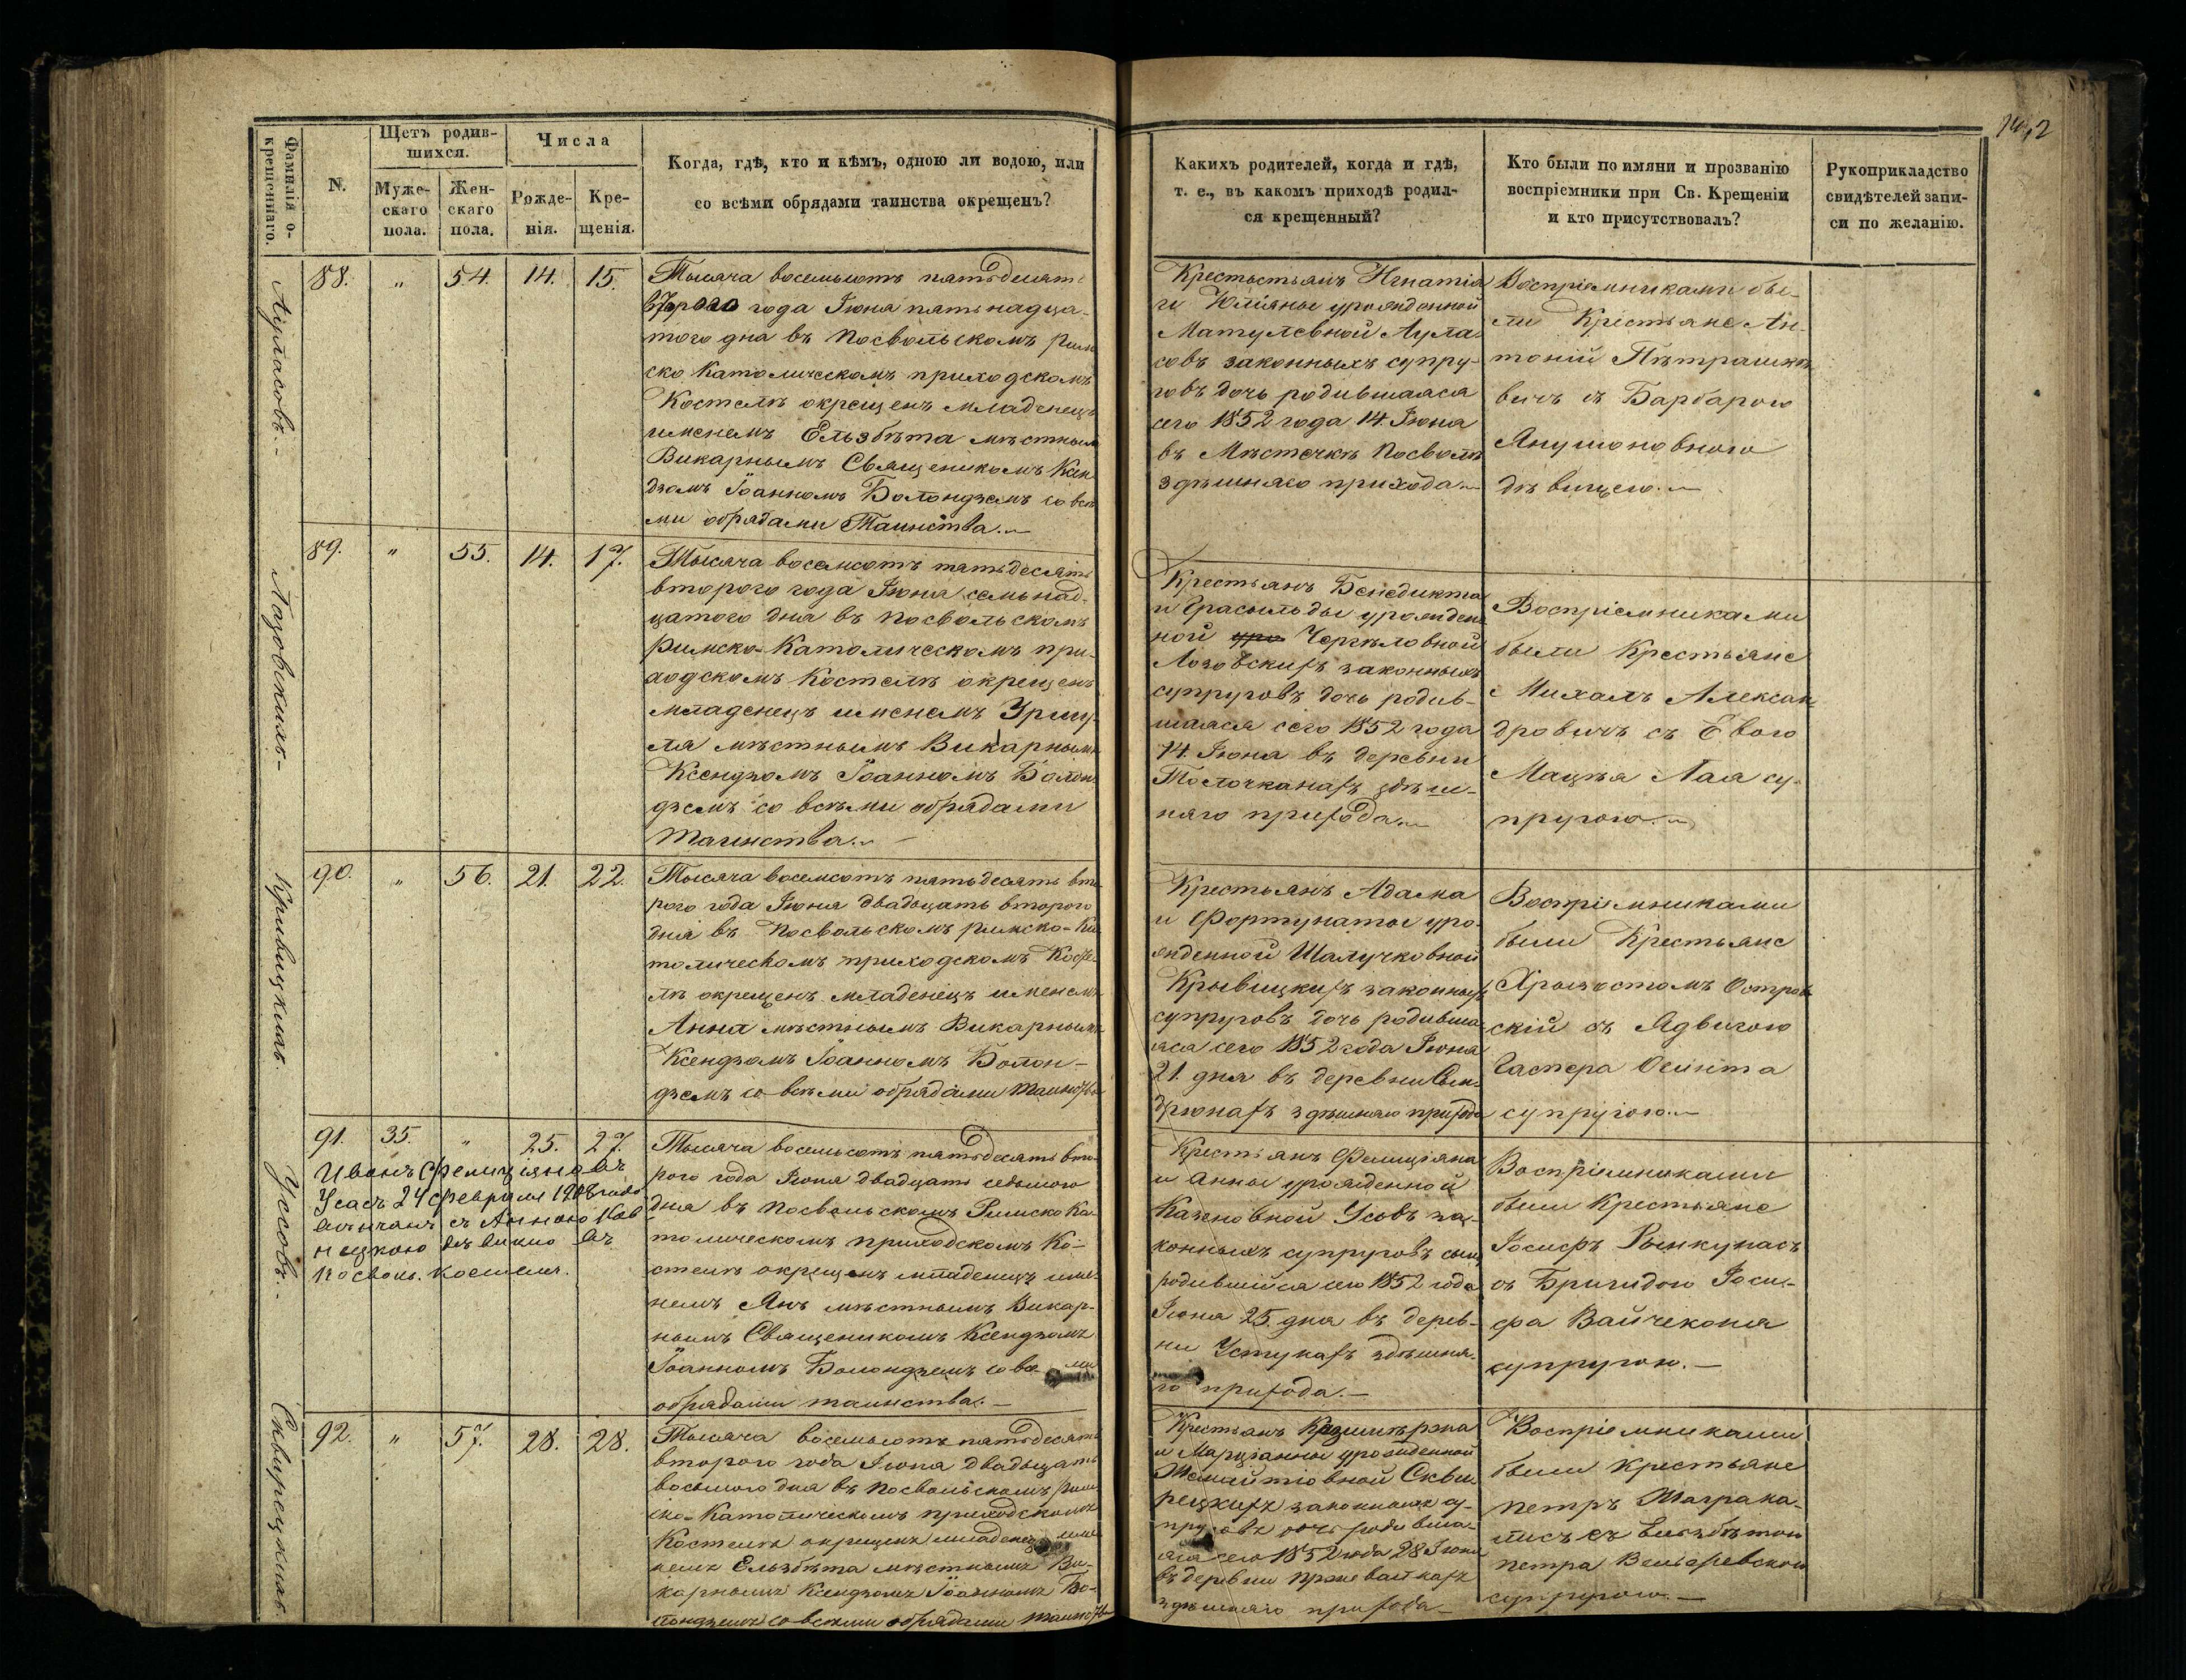 142
Фамилія о-
крещеннаго.
N.
Щетъ родив-
шихся.
Муже-
скаго
пола.
Жен-
скаго
пола.
Числа
Рожде-
нія.
Кре-
щенія.
Когда, гдѣ, кто и кѣмъ, одною ли водою, или
со всѣми обрядами таинства окрещенъ?
Какихъ родителей, когда и гдѣ,
т. е., въ какомъ приходѣ родил-
ся крещенный?
Кто были по имяни и прозванію
воспріемники при Св. Крещеніи
и кто присутствовалъ?
Рукоприкладство
свидѣтелей запи-
си по желанію.
Ауласовъ.-
88. " 54. 14. 15.
Тысяча восемьсотъ пятьдесятъ
втораго года Іюна пятьнадца-
того дна въ Посвольскомъ рим
ско Католическомъ приходскомъ
Костелѣ окрещенъ младенецъ
именемъ Ельзбѣта мѣстнымъ
Викарнымъ Священикомъ Ксен
дзомъ Іоанномъ Болондземъ со всѣ
ми обрядами Таинства.
Крестьстьянъ Игнатія
и Юліяны урожденной
Матулевной Аула-
совъ законныхъ супру-
говъ дочь родившаяся
сего 1852 года 14. Іюна
въ Мѣстечкѣ Посволѣ
здѣшняго прихода.
Воспріемниками бы-
ли Крестьяне Ан-
тоній Пѣтрашке
вичъ съ Барбарою
Янушоновною
дѣвицею.
Лозовскихъ-
89. " 55. 14. 17.
Тысяча восемсотъ пятьдесятъ
второго года Іюна семьнад-
цатого дна въ Посвольскомъ
Римско-Католическомъ при-
ходскомъ Костелѣ окрещенъ
младенецъ именемъ Уршу-
ля мѣстнымъ Викарнымъ
Ксендзомъ Іоанномъ Болон-
дземъ со всѣми обрядами
Таинства.
Крестьянъ Бенедикта
и Грасыльды урожден
ной Чоргеловной
Лозовскихъ законныхъ
супруговъ дочь родив-
шаяся сего 1852 года
14. Іюна въ деревни
Толочканахъ здѣш-
няго прихода.
Воспріемниками
были Крестьяне
Михалъ Александ
дровичъ съ Евою
Мацѣя Лая су-
пругою.
Кривицкихъ.
90. " 56. 21. 22.
Тысяча восемсотъ пятьдесятъ вто
рого года Іюна двадцать второго
дня въ Посвольскомъ римско-Ка
толическомъ приходскомъ Косте-
лѣ окрещенъ младенецъ именемъ
Анна мѣстнымъ Викарнымъ
Ксендзомъ Іоанномъ Болон-
дземъ со всѣми обрядами Таинства
Крестьянъ Адама
и Фортунаты уро-
жденной Шалучковной
Крывицкихъ законныхъ
супруговъ дочь родивша-
яса сего 1852 года Іюна
21. дня въ деревни
здѣшняго прихода
Воспріемниками
были Крестьяне
Хрызостомъ Островъ
скій съ Ядвигою
Гаспера Осинта
супругою.
Усовъ.-
91. 35. " 25. 27.
Иванъ Фелиціановъ
Усасъ 24 февраля 1908 года
вѣнчанъ съ Анною
дѣвицею въ
Посволь. костелѣ.
Тысяча восемьсотъ пятьдесятъ вто-
рого года Іюна двадцать седьмого
дня въ Посвольскомъ Римско Ка-
толическомъ приходскомъ Ко-
стелѣ окрещенъ младенецъ име-
немъ Янъ мѣстнымъ Викар-
нымъ Священикомъ Ксендзомъ
Іоанномъ Болондземъ со все ми
обрядами таинства.-
Крестьянъ Фелиціяна
и Анны урожденной
Казеновной Усовъ за-
конныхъ супруговъ сынъ
родившійся сего 1852 года
Іюна 25. дна въ дерев-
ни Устукахъ здѣшня-
го прихода.-
Воспріемниками
были Крестьяне
Іосифъ Рынкунасъ
съ Бригидою Іоси-
фа Вайчекона
супругою.-
Сквирецкихъ.
92. " 57. 28. 28.
Тысяча восемьсотъ пятьдесятъ
второго года Іюна двадцать
восьмого дна въ Посвольскомъ рим
ско-Католическомъ приходскомъ
Костелѣ окрещенъ младенец име
немъ Ельзбѣта мѣстнымъ Ви-
карнымъ Ксендзомъ Іоанномъ Бо-
лондземъ со всѣми обрядами таинства
Крестьянъ Казимѣрэна
и Марціанны урожденной
Жемайтіовной Скви-
рецкихъ законныхъ су-
пруговъ дочь родивша-
яса сего 1852 года 28 Іюна
въ деревни
здѣшняго прихода-
Воспріемниками
были крестьяне
Петръ Шаграка-
лисъ съ Ельзбѣтою
Петра
супругою.-